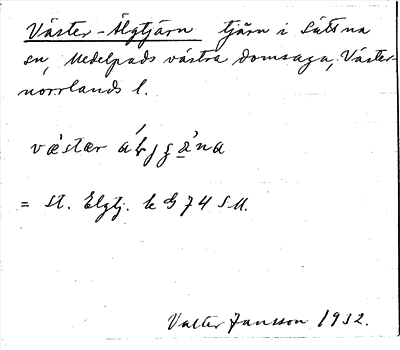 Väster-Älgtjärn tjärn i Sättna
sn, Medelpads västra domsaga, Väster-
norrlands l.
väster
= St. Elgtj. k G 74 S M.
Valter Jansson 1932.